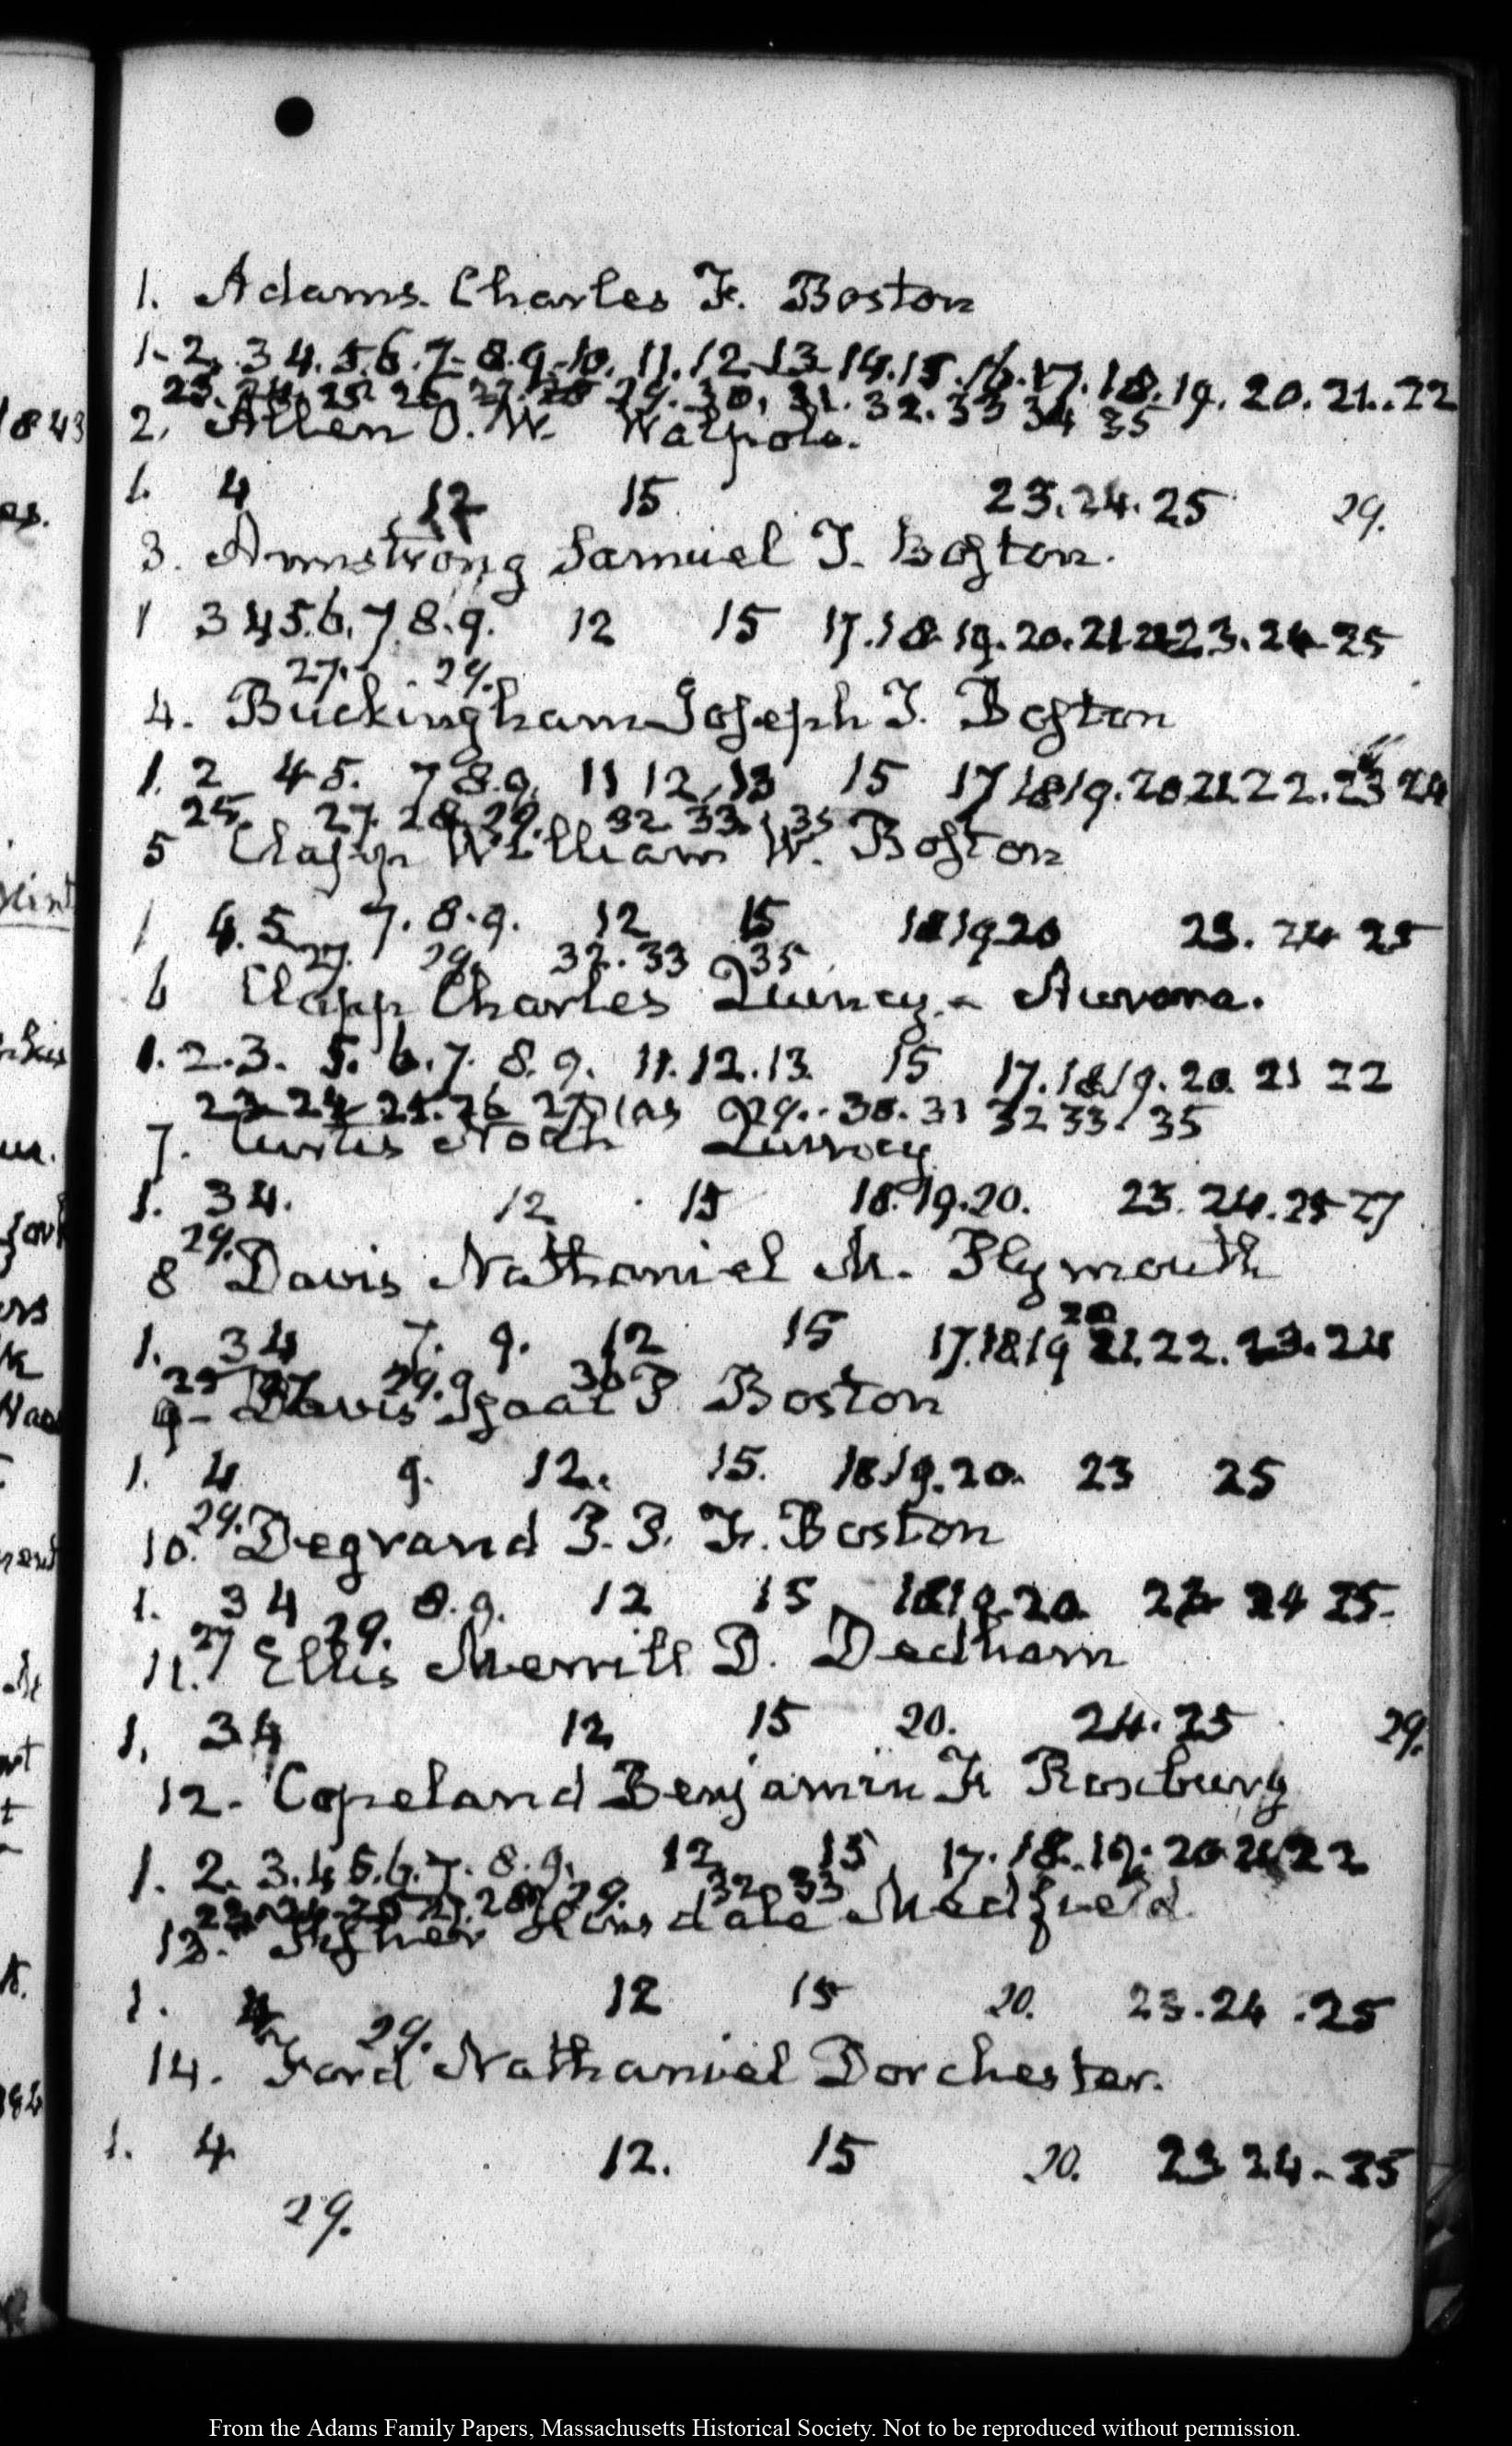 1. Adams. Charles F. Boston
1. 2. 3 4. 5. 6. 7. 8. 9. 10. 11. 12. 13 14. 15. 16. 17. 18. 19. 20. 21. 22
23. 24. 25 26 27. 28 29. 30. 31. 32. 33 34 35
2. Allen O. W. Walpole.
1. 4 12 15 23. 24. 25 29.
3. Armstrong Samuel T. Boston.
1 3 4 5. 6. 7 8. 9. 12 15 17. 18. 19. 20. 21 22 23. 24 25
27. 29.
4. Buckingham Joseph T. Boston
1. 2 4 5. 7 8. 9. 11 12 13 15 17 18 19. 20 21 22. 23 24
25. 27. 28. 29. 32 33. 35
5 Clapp William W. Boston
1 4. 5 7. 8. 9. 12 15 18 19 20 23. 24 25
27. 29. 32. 33 35
6 Clapp Charles Quincy - Aurora.
1. 2. 3. 5. 6. 7. 8. 9. 11. 12. 13. 15 17. 18 19. 20. 21 22
23 24 25. 26 27 29. 30. 31 32 33 35
7. Curtis Noah Quincy
1. 3 4. 12 15 18. 19. 20. 23. 24. 25 27
29.
8 Davis Nathaniel M. Plymouth
20
1. 3 4 7. 9. 12 15 17. 18. 19 21. 22. 23. 24
25 27 29. 30
9 - Davis Isaac P. Boston
1. 4 9. 12. 15. 18 19. 20. 23 25
29.
10. Degrand P. P. F. Boston
1. 3 4 8. 9. 12 15 18 19. 20. 23 24 25.
27 29.
11. Ellis Merrill D. Dedham
1. 3 4 12 15 20. 24. 25 29.
12. Copeland Benjamin F. Roxbury
1. 2. 3. 4 5. 6. 7. 8. 9. 12 15 17. 18. 19. 20 21 22
23. 24 25 27. 28 29. 32 33
13. Fisher Hinsdale Medfield.
1. 4 12 15 20. 23. 24. 25
29.
14. Ford Nathaniel Dorchester.
1. 4 12. 15 20. 23 24. 25
29.
From the Adams Family Papers, Massachusetts Historical Society. Not to be reproduced without permission.